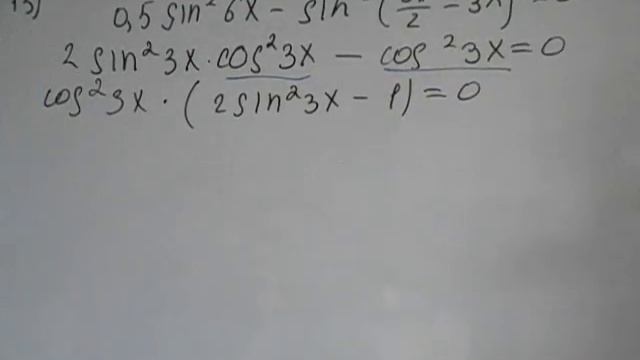 0,5 sin² 6x - sin ( π/2 - 3x)
2 sin² 3x · cos² 3x - cos² 3x = 0
cos² 3x · ( 2 sin² 3x - 1) = 0